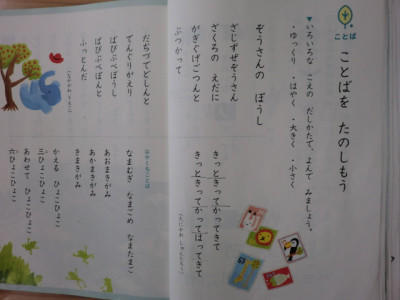 ことば
ことばを たのしもう
▼いろいろな こえの だしかたで、よんで みましょう。
・ゆっくり ・はやく ・大きく ・小さく
ぞうさんの ぼうし
ざじずぜぞうさん
ざくろの えだに
がぎぐげごつんと
ぶつかって
だぢづでどしんと
でんぐりがえり
ばびぶべぼうし
ぱぴぷぺぽんと
ふっとんだ
きっときってかってきて
きっときってかってはってきて
はやくちことば
なまむぎ なまごめ なまたまご
あおまきがみ
あかまきがみ
きまきがみ
かえる ひょこひょこ
三ひょこひょこ
あわせて ひょこひょこ
六ひょこひょこ